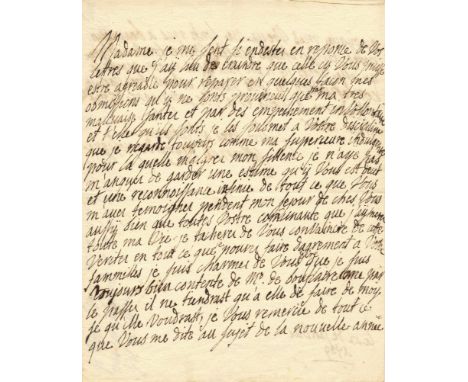 Madame je me sent si endestes en reponse de Vos
lettres que j'ay lieu de craindre que celle cy Vous puisse
estre agreable pour reparer en quelques facon mes
obmissions qui ne sont provenues que ma tres
mauvaise santee et par des
et je les soumet a Vostre
que je regarde toujours comme ma superieure
pour la quelle malgrer mon silence je n'aye pas
manquee de garder une estime qui Vous est
et une reconnoissance infinie de tout ce que Vous
m'aves temoignee pendent mon sejour de ches Vous
aussy bien que toutes Vostre cominaute que
toute ma Vie je tacheré de Vous de cette
Veritee en tout ce que pourez faire d'agrement a Votre
je suis charmee de Vous que je suis
toujours bien contente de Me. de par
le passee il ne tiendrait qu'a elle de faire de moy
ce qu'elle Voudrait, je Vous remercie de tout ce
que Vous me dite au sujet de la nouvelle année